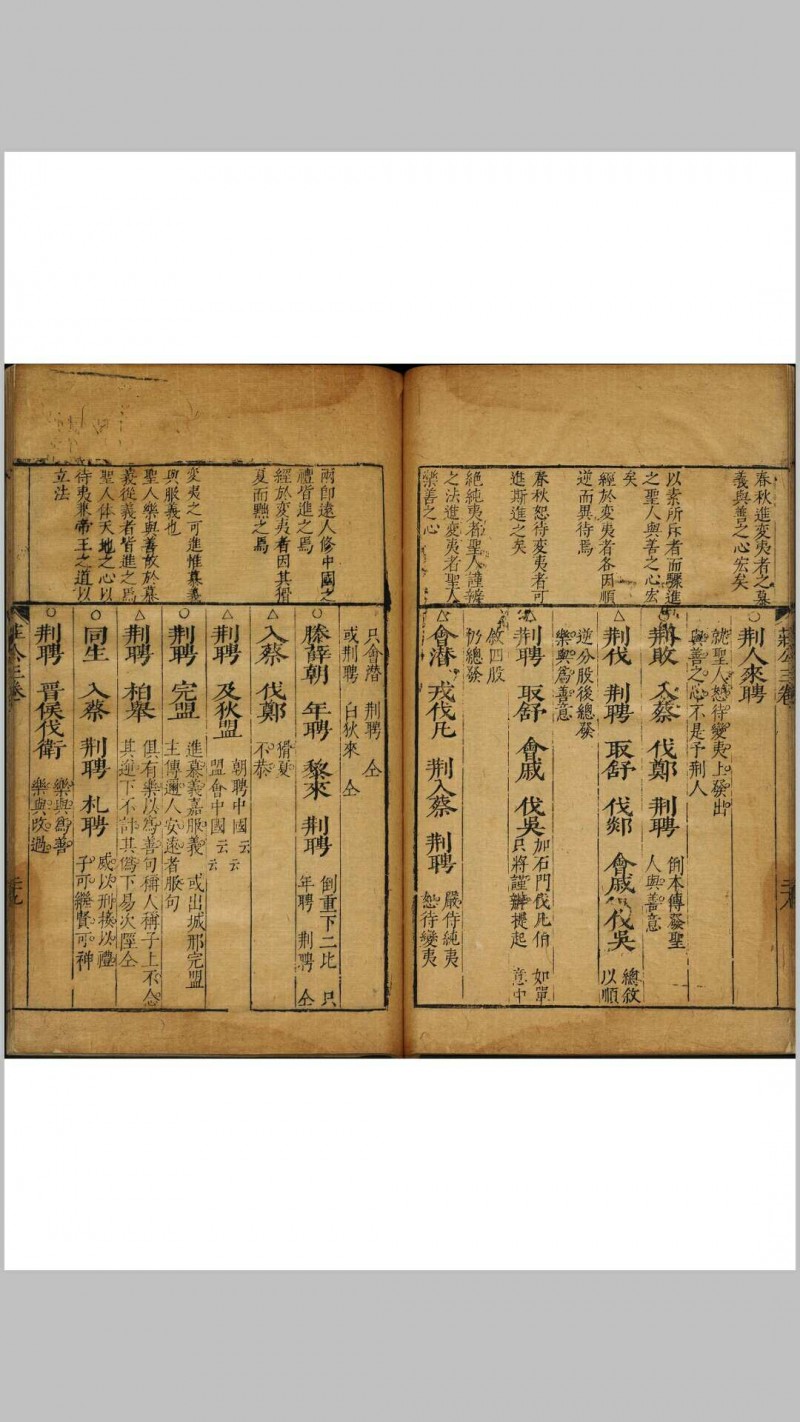 春秋進変夷者之慕
義與善之心宏矣
以素所斥者而驟進
之聖人與善之心宏
矣
經於変夷者各因順
逆而異待焉
春秋恕待変夷者可
進斯進之矣
絕純夷者聖人謹辨
之法進変夷者聖人
樂善之心
莊公三卷
○荆人來聘
就聖人恕待變夷上發出
與善之心不是予荆人
○荆敗 入蔡 伐鄭 荆聘
倒本傳發聖
人與善意
△荆伐 荆聘 取舒 伐郯 會戚 伐吳
總敘
以順
逆分股後總發
樂與爲善意
△荆聘 取舒 會戚 伐吳
加石門伐凡伯 如單
只將謹辨提起 意中
敘四股
仍總發
△會潜 戎伐凡 荆入蔡 荆聘
嚴待純夷
恕待變夷
兩卽遠人修中國之
禮皆進之焉
經於変夷者因其猾
夏而黜之焉
変夷之可進惟慕義
與服義也
聖人樂與善故於慕
義從義者皆進之焉
聖人体天地之心以
待夷兼帝王之道以
立法
只會潜 荆聘 仝
或荆聘 白狄來 仝
○滕薛朝 年聘 黎來 荆聘
倒重下二比 只
年聘 荆聘 仝
△入蔡 伐鄭
猾夏
不恭
△荆聘 及狄盟
朝聘中國云云
盟會中國云云
○荆聘 完盟
進慕義嘉服義 或出城那完盟
主傳邇人安遠者服句
△荆聘 柏舉
俱有樂以爲善句稱人稱子上不念
其逆下不計其僞下易次陘仝
○同生 入蔡 荆聘 札聘
威以刑接以禮
子可繼賢可神
○荆聘 晋侯伐衛
樂與爲善
樂與改過
莊公三卷